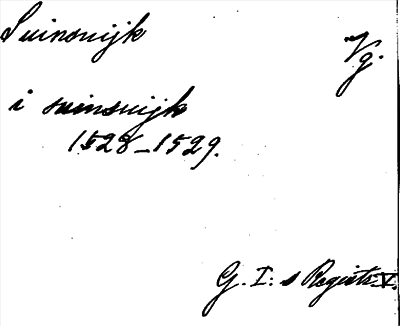 Svinsvijk
Vg.
i svinsvijk
1528–1529.
G. I: s Registr. V.